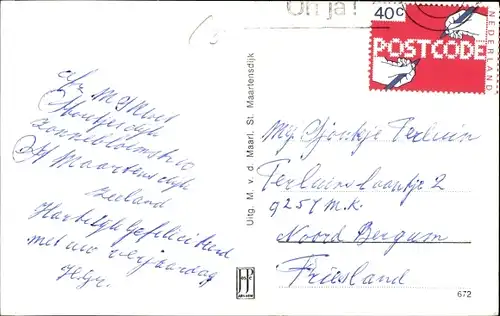 Oh ja!
40c
POSTCODE
NEDERLAND
Zonnebloemstr 10
St Maartensdijk
Zeeland
Hartelijk gefeliciteerd
met uw verjaardag
Uitg. M. v. d. Maarl, St. Maartensdijk
Mej Sjoukje Terluin
Terluinslaantje 2
9257 M.K.
Noord Bergum
Friesland
672